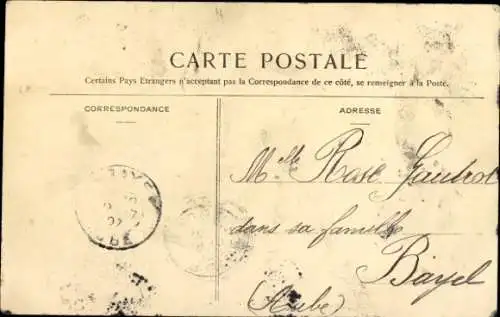 CARTE POSTALE
Certains Pays Etrangers n'acceptant pas la Correspondance de ce côté, se renseigner à la Poste.
CORRESPONDANCE
ADRESSE
Mlle Rose Gautrot
dans sa famille
Bayel
(Aube)